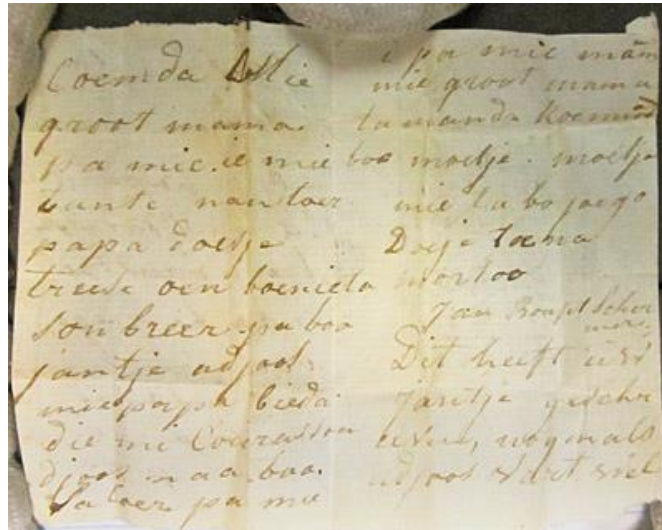 Coemda Dollie
groot mama.
pa mie. ie mie boo
tante nan toer
papa doesje
treese oen boenieta
sonbreer pa boo
jantje adjoos
mie papa bieda
die mi Courasson
djoos naa boo.
Sa toer pa mie
i pa mie mam
mie groot mama
ta manda Koemind
moetje. moetje
mie ta bo joego
Doeje toena
morloo
Jan Boufet Scher
mers.
Dit heeft uw
Jantje geschr
even, nogmals
adjoos